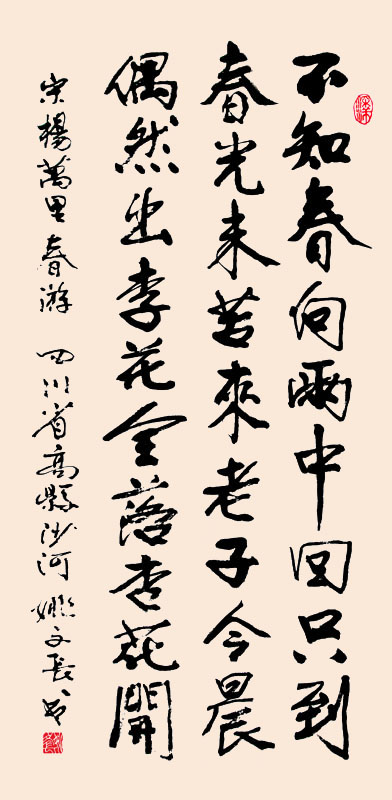 不知春向雨中回只到
春光未苦來老子今晨
偶然出李花全落杏花開
宋楊萬里春游 四川省高縣沙河 姚文長书